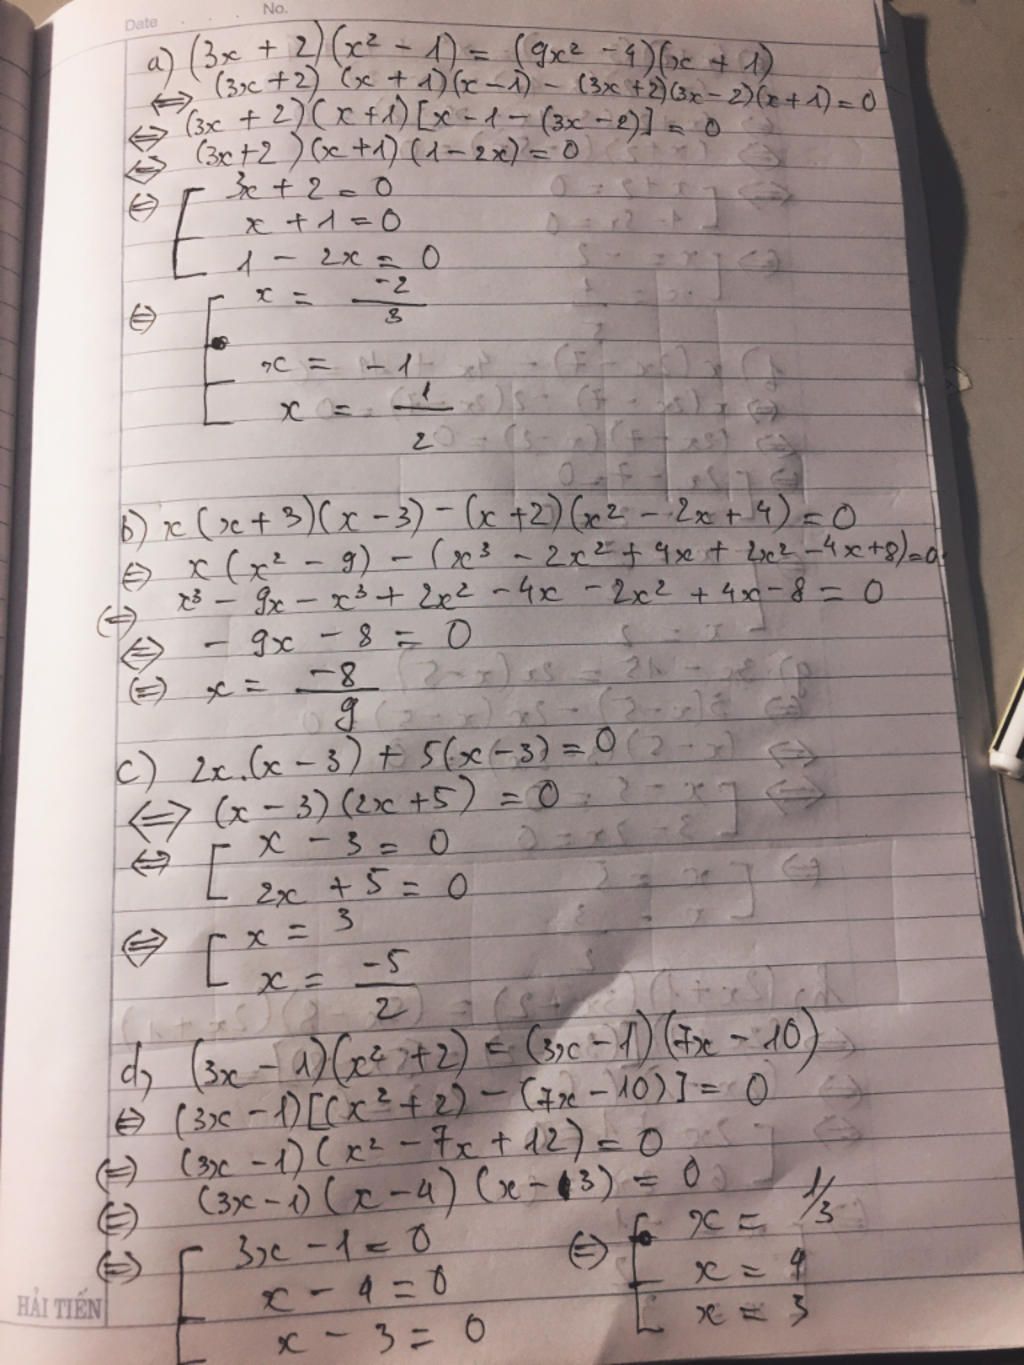 Date No.
a) (3x + 2)(x² - 1) = (9x² - 4)(x + 1)
⇔ (3x+2) (x + 1)(x - 1) - (3x+2)(3x-2)(x+1) = 0
⇔ (3x + 2)(x+1)[x - 1 - (3x - 2)] = 0
⇔ (3x+2)(x+1)(1 - 2x) = 0
⇔ [ 3x + 2 = 0
x + 1 = 0
1 - 2x = 0
⇔ [ x = -2/3
x = -1
x = 1/2
b) x(x+3)(x-3) - (x+2)(x² - 2x + 4) = 0
⇔ x(x² - 9) - (x³ - 2x² + 4x + 2x² - 4x + 8) = 0
⇔ x³ - 9x - x³ + 2x² - 4x - 2x² + 4x - 8 = 0
⇔ - 9x - 8 = 0
⇔ x = -8/9
c) 2x.(x - 3) + 5(x - 3) = 0
⇔ (x - 3)(2x+5) = 0
⇔ [ x - 3 = 0
2x + 5 = 0
⇔ [ x = 3
x = -5/2
d) (3x - 1)(x² + 2) = (3x - 1)(7x - 10)
⇔ (3x - 1)[(x² + 2) - (7x - 10)] = 0
⇔ (3x - 1)(x² - 7x + 12) = 0
⇔ (3x - 1)(x - 4)(x - 3) = 0
⇔ [ 3x - 1 = 0 ⇔ [ x = 1/3
x - 4 = 0 x = 4
x - 3 = 0 x = 3
HẢI TIẾN